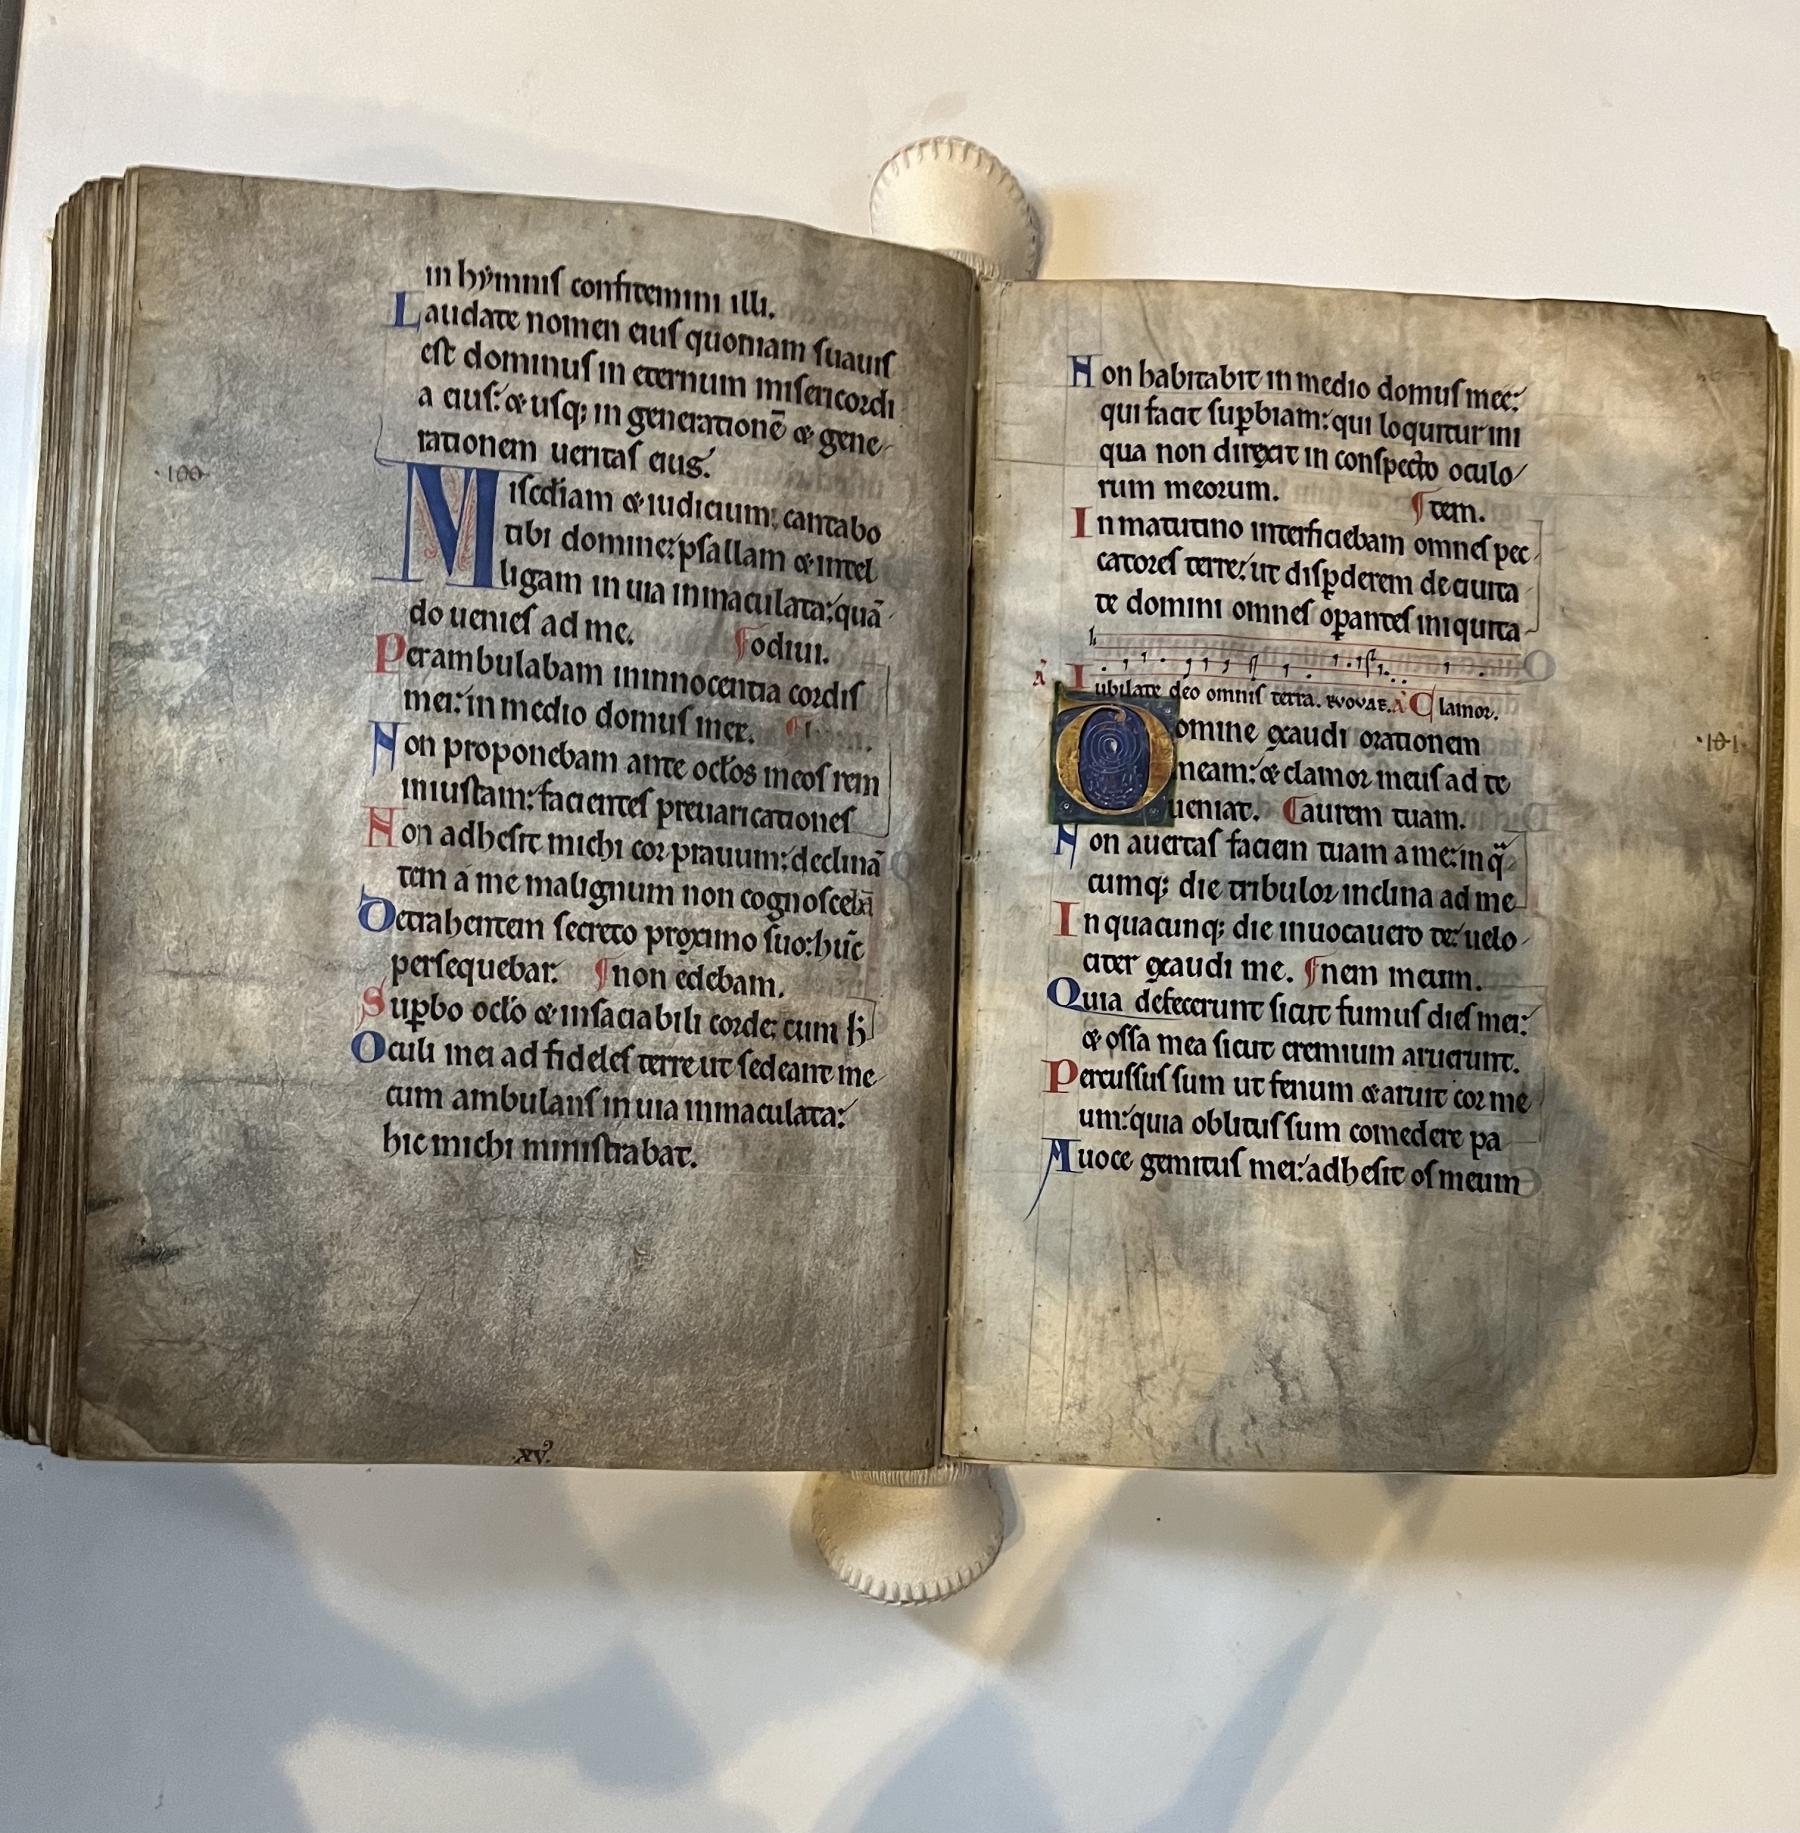 in hẏmnis confitemini illi.
Laudate nomen eius quoniam suauis
est dominus in eternum misericordi
a eius: & usq; in generationē & gene-
rationem ueritas eius.
·100·
Misc̄diam & iudicium: cantabo
tibi domine: psallam & intel
ligam in uia inmaculata: quā
do uenies ad me. ¶odiui.
Perambulabam ininnocentia cordis
mei: in medio domus mee.
Non proponebam ante oc̄los meos rem
iniustam: facientes preuaricationes
Non adhesit michi cor prauum: declinā
tem a me malignum non cognoscebā
Detrahentem secreto proximo suo: hūc
persequebar. ¶non edebam.
Suꝑbo oc̄lo & insaciabili corde: cum h̄
Oculi mei ad fideles terre ut sedeant me
cum ambulans in uia inmaculata:
hic michi ministrabat.
xv.
Non habitabit in medio domus mee:
qui facit suꝑbiam: qui loquitur ini
qua non direxit in conspecto oculo
rum meorum. ¶tem.
In matutino interficiebam omnes pec
catores terre: ut disꝑderem de ciuita
te domini omnes oꝑantes iniquita
A Iubilate deo omnis terra. euouae. A Clamor.
·101·
Domine exaudi orationem
meam: & clamor meus ad te
ueniat. ¶aurem tuam.
Non auertas faciem tuam a me: in q̄
cumq; die tribulor inclina ad me
In quacunq; die inuocauero te: uelo
citer exaudi me. ¶nem meum.
Quia defecerunt sicut fumus dies mei:
& ossa mea sicut cremium aruerunt.
Percussus sum ut fenum & aruit cor me
um: quia oblitus sum comedere pa
A uoce gemitus mei: adhesit os meum